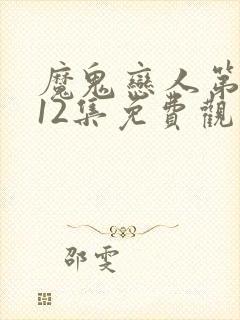 魔鬼戀人第
12集免費觀
邵雯